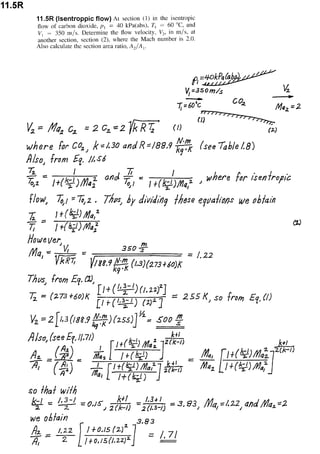 11.5R
11.5R (Isentroppic flow) At section (1) in the isentropic
flow of carbon dioxide, p₁ = 40 kPa(abs), T₁ = 60 °C, and
V₁ = 350 m/s. Determine the flow velocity, V₂, in m/s, at
another section, section (2), where the Mach number is 2.0.
Also calculate the section area ratio, A₂/A₁.
p₁=40kPa(abs)
V₁=350 m/s
T₁=60°C
CO₂
V₂
Ma₂=2
(1)
(2)
V₂ = Ma₂ c₂ = 2 c₂ = 2 √(k R T₂) (1)
where for CO₂, k=1.30 and R=188.9 N·m/kg·K (see Table 1.8)
Also, from Eq. 11.56
T₂/T₀,₂ = 1/(1+((k-1)/2)Ma₂²) and T₁/T₀,₁ = 1/(1+((k-1)/2)Ma₁²) , where for isentropic
flow, T₀,₁ = T₀,₂ . Thus, by dividing these equations we obtain
T₂/T₁ = (1+((k-1)/2)Ma₁²)/(1+((k-1)/2)Ma₂²) (2)
However,
Ma₁ = V₁/√(kRT₁) = 350 m/s / √((188.9 N·m/kg·K)(1.3)(273+60)K) = 1.22
Thus, from Eq.(2),
T₂ = (273+60)K [1+((1.3-1)/2)(1.22)²]/[1+((1.3-1)/2)(2)²] = 255 K, so from Eq.(1)
V₂ = 2[1.3(188.9 N·m/kg·K)(255)]^½ = 500 m/s
Also,(see Eq. 11.71)
A₂/A₁ = (A₂/A*)/(A₁/A*) = (1/Ma₂ [(1+((k-1)/2)Ma₂²)/(1+((k-1)/2))]^((k+1)/(2(k-1))))/(1/Ma₁ [(1+((k-1)/2)Ma₁²)/(1+((k-1)/2))]^((k+1)/(2(k-1)))) = Ma₁/Ma₂ [(1+((k-1)/2)Ma₂²)/(1+((k-1)/2)Ma₁²)]^((k+1)/(2(k-1)))
so that with
(k-1)/2 = (1.3-1)/2 = 0.15, (k+1)/(2(k-1)) = (1.3+1)/(2(1.3-1)) = 3.83, Ma₁=1.22, and Ma₂=2
we obtain
A₂/A₁ = 1.22/2 [(1+0.15(2)²)/(1+0.15(1.22)²)]^3.83 = 1.71